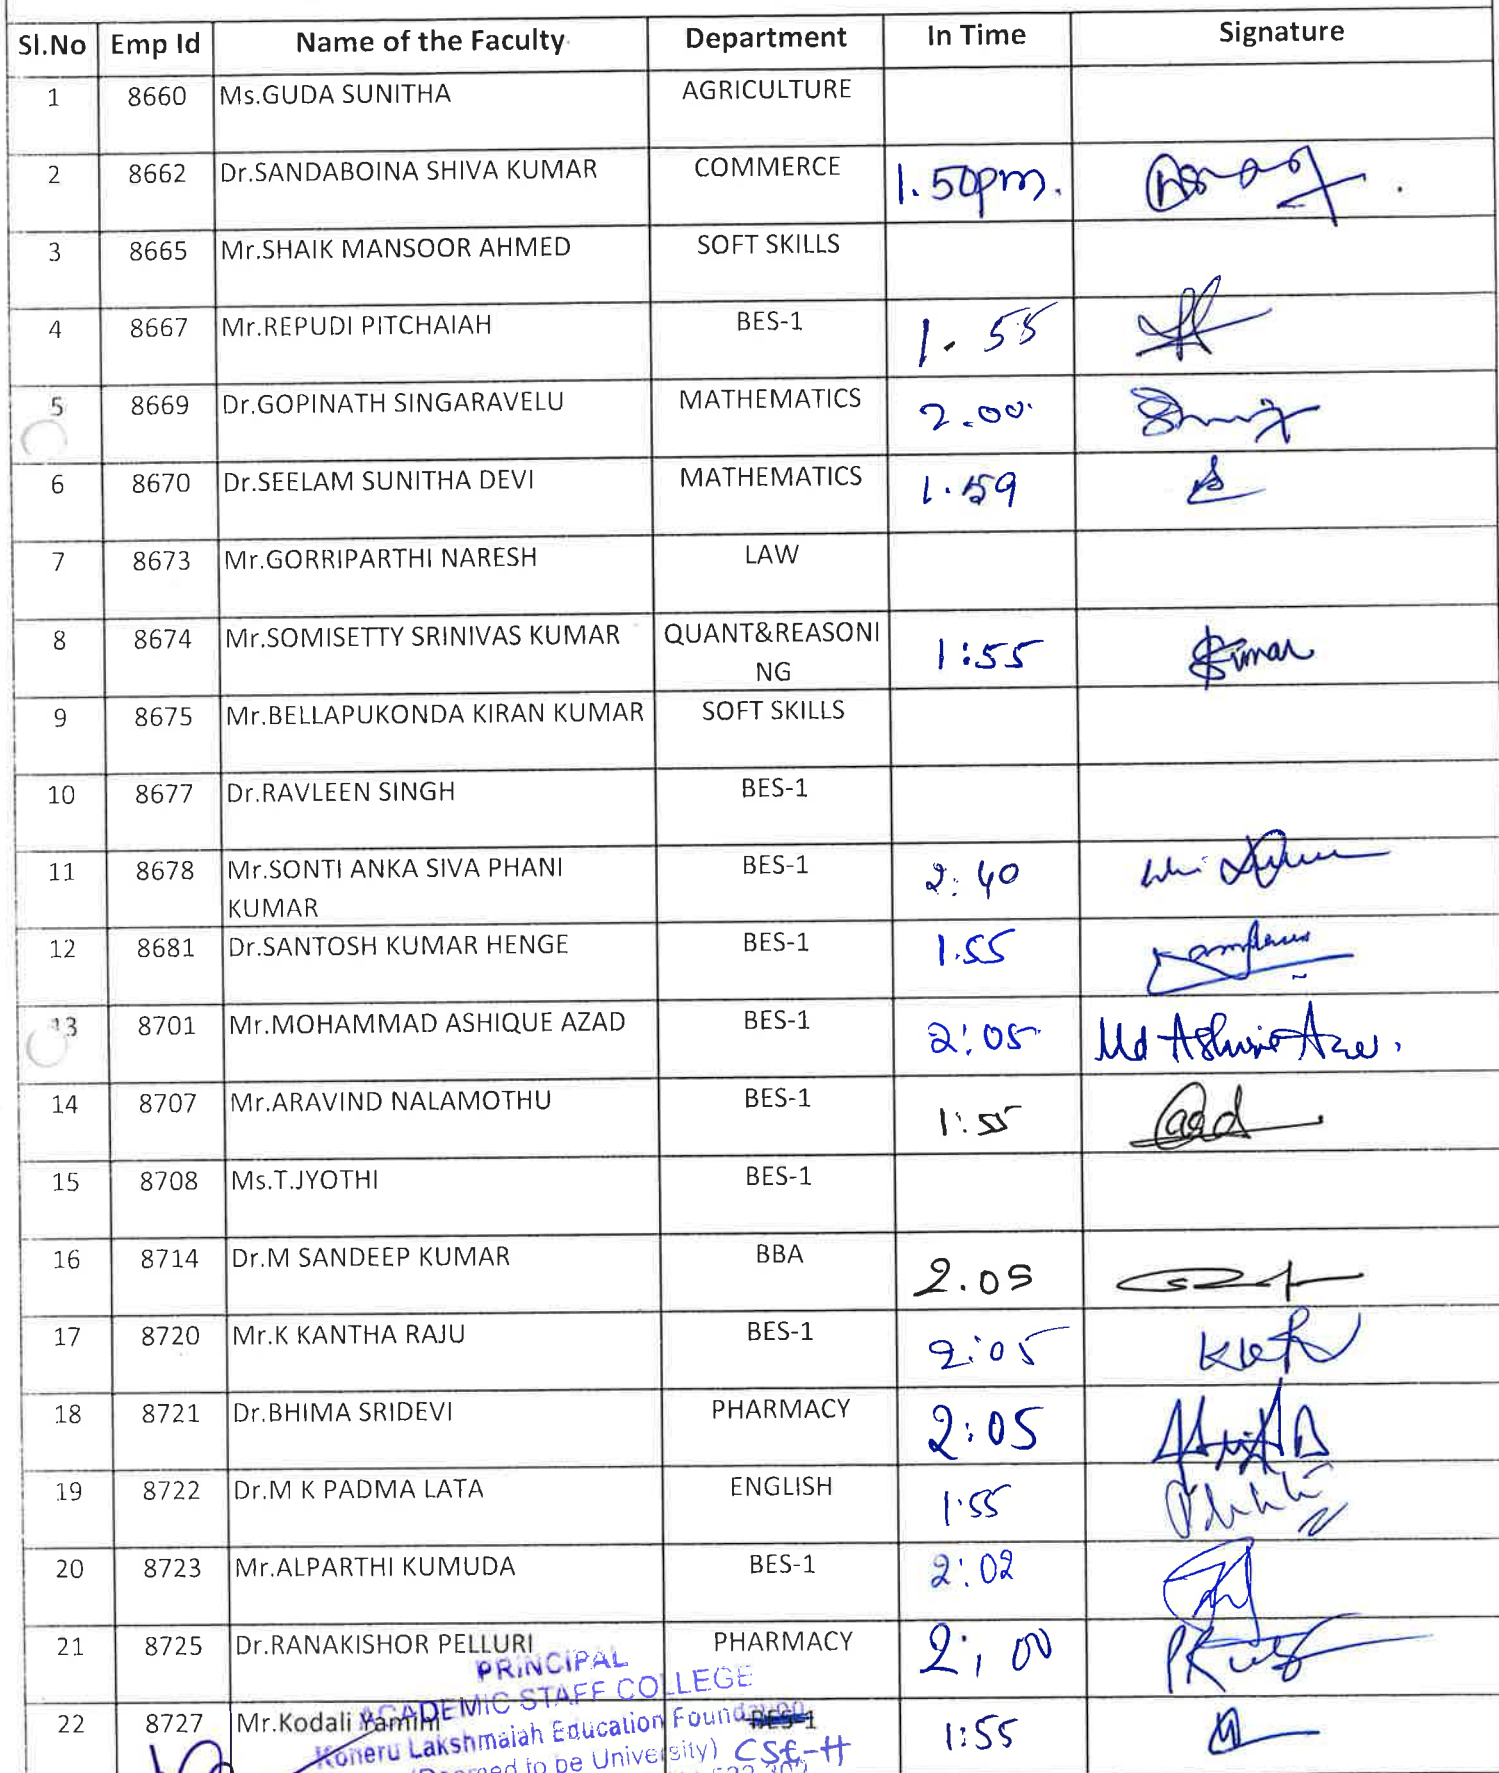 Sl.No Emp Id Name of the Faculty Department In Time Signature
1 8660 Ms.GUDA SUNITHA AGRICULTURE
2 8662 Dr.SANDABOINA SHIVA KUMAR COMMERCE 1.50pm.
3 8665 Mr.SHAIK MANSOOR AHMED SOFT SKILLS
4 8667 Mr.REPUDI PITCHAIAH BES-1 1.55
5 8669 Dr.GOPINATH SINGARAVELU MATHEMATICS 2.00
6 8670 Dr.SEELAM SUNITHA DEVI MATHEMATICS 1.59
7 8673 Mr.GORRIPARTHI NARESH LAW
8 8674 Mr.SOMISETTY SRINIVAS KUMAR QUANT&REASONI 1:55 Skumar
NG
9 8675 Mr.BELLAPUKONDA KIRAN KUMAR SOFT SKILLS
10 8677 Dr.RAVLEEN SINGH BES-1
11 8678 Mr.SONTI ANKA SIVA PHANI BES-1 2:40
KUMAR
12 8681 Dr.SANTOSH KUMAR HENGE BES-1 1.55
13 8701 Mr.MOHAMMAD ASHIQUE AZAD BES-1 2:05 Md
14 8707 Mr.ARAVIND NALAMOTHU BES-1 1:55
15 8708 Ms.T.JYOTHI BES-1
16 8714 Dr.M SANDEEP KUMAR BBA 2.05
17 8720 Mr.K KANTHA RAJU BES-1 2:05
18 8721 Dr.BHIMA SRIDEVI PHARMACY 2:05
19 8722 Dr.M K PADMA LATA ENGLISH 1:55
20 8723 Mr.ALPARTHI KUMUDA BES-1 2:02
21 8725 Dr.RANAKISHOR PELLURI PHARMACY 2:00
PRINCIPAL
ACADEMIC STAFF COLLEGE
22 8727 Mr.Kodali Yamini BES-1 1:55
Koneru Lakshmaiah Education Foundation
(Deemed to be University) CSE-H